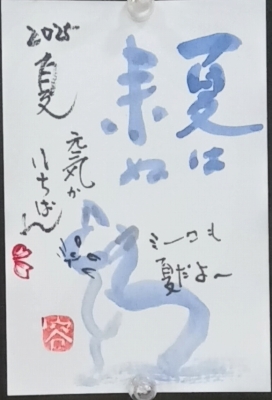 夏は
来ぬ
2025
夏
元気が
いちばん
ミーコも
夏だよ～